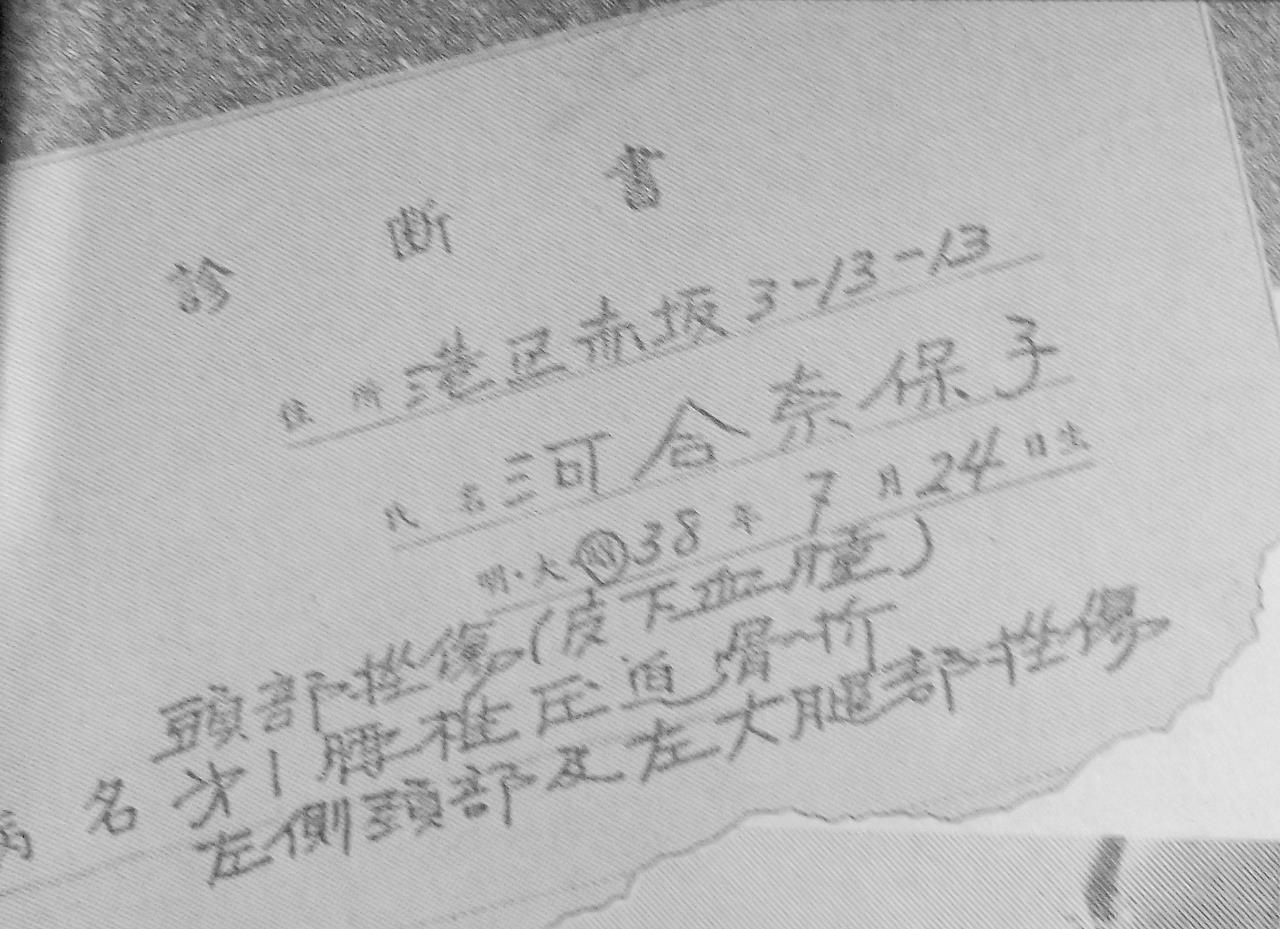 診断書
住所 港区赤坂3-13-13
氏名 河合奈保子
明・大・昭38年7月24日生
頭部挫傷(皮下血腫)
病名 第1腰椎圧迫骨折
左側頭部及左大腿部挫傷